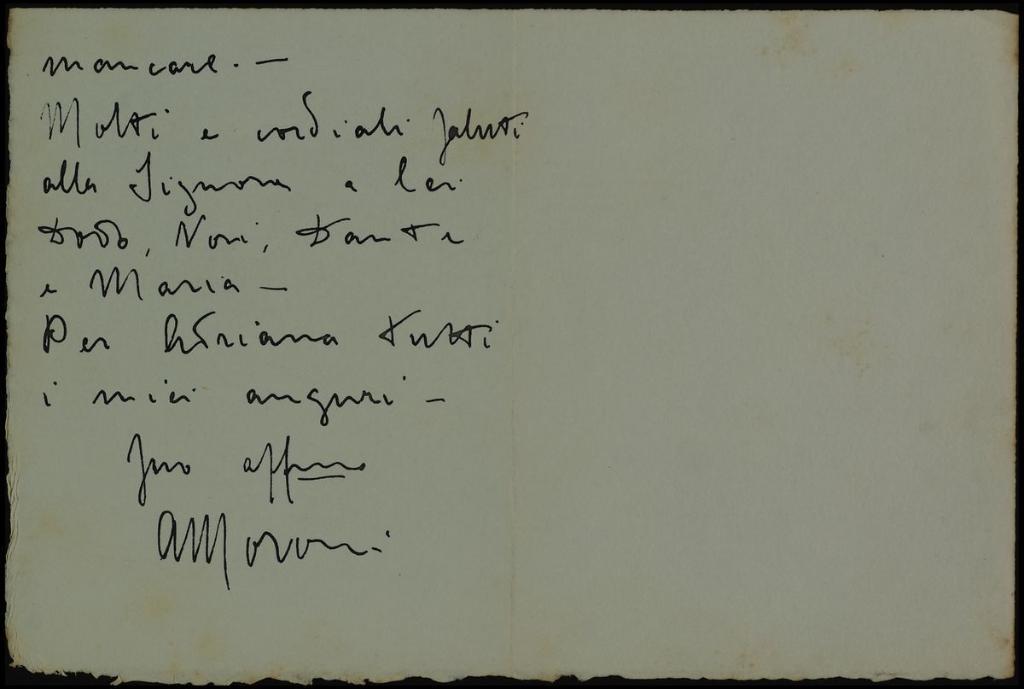 mancare. —
Molti e cordiali saluti
alla Signora a lei
Dodo, Nori, Dante
e Maria —
Per Adriana tutti
i miei auguri —
Suo affmo
AMoroni